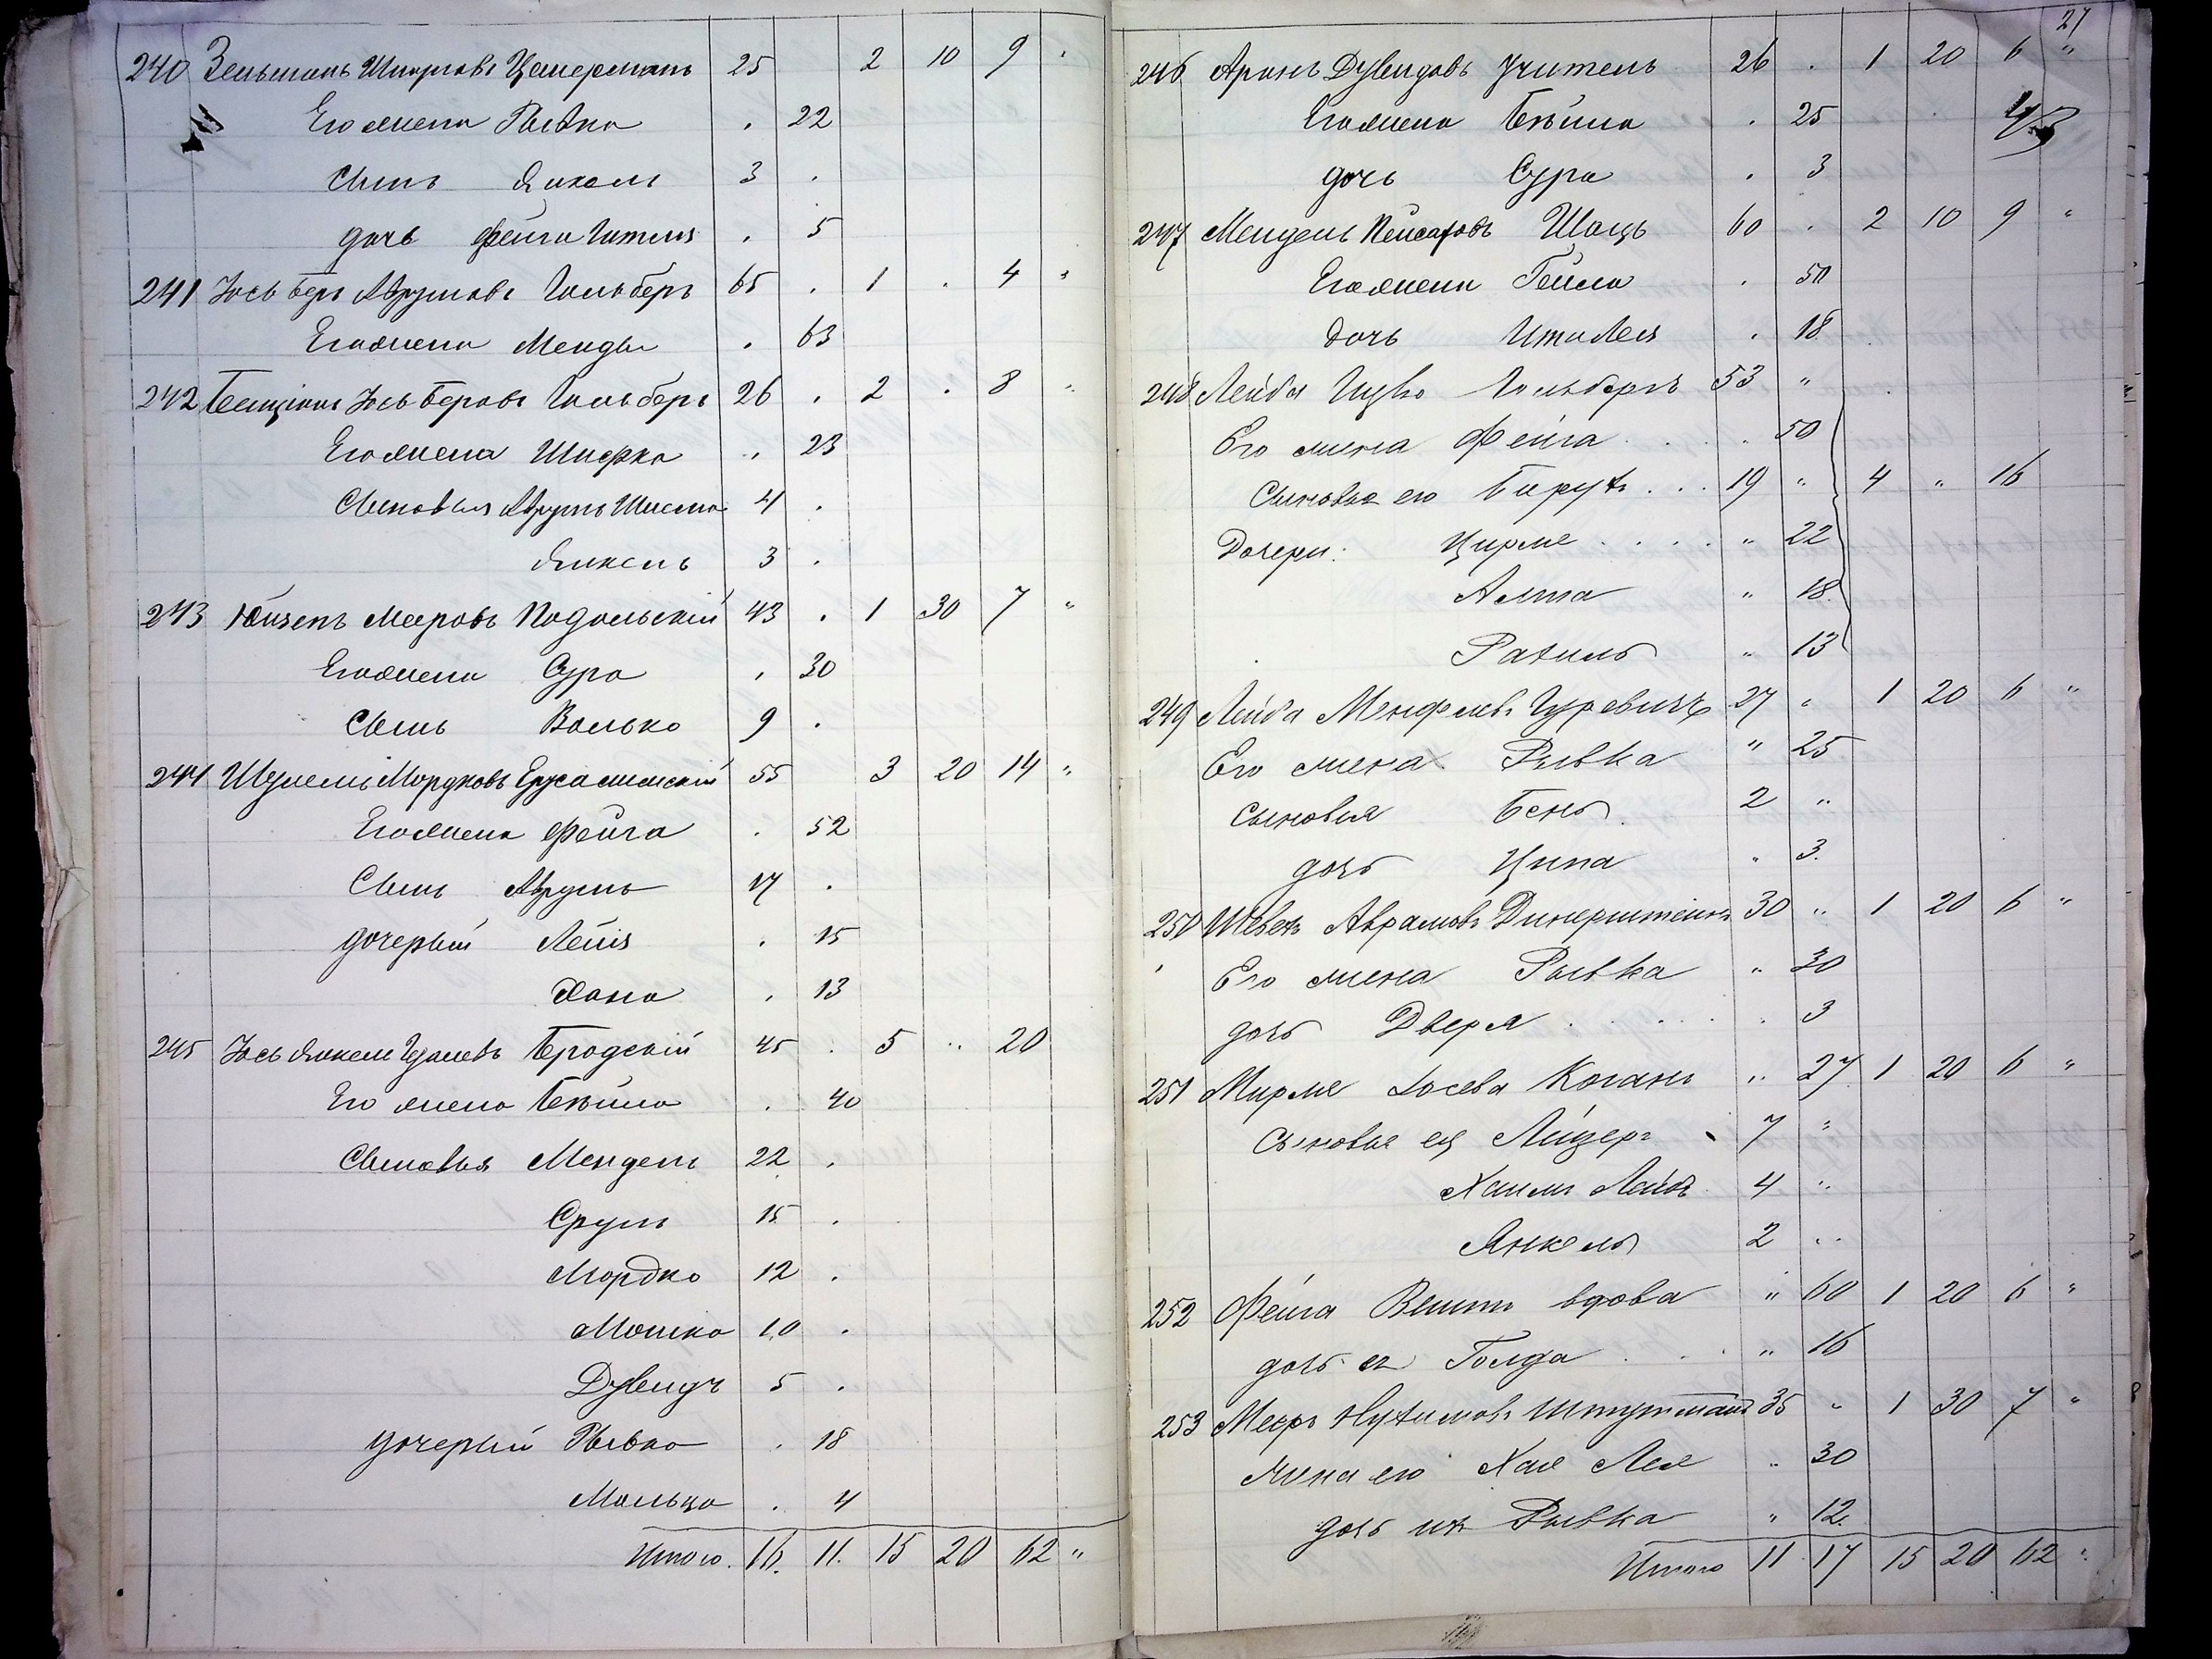 240 Зельманъ Шмулевъ Цимерманъ 25 2 10 9
Его жена Рывка . 22
Сынъ Янкель 3 .
дочь Фейга Гитля . 5
241 Іось Беръ Аврумовъ Гольберъ 65 . 1 . 4 "
Его жена Менды . 63
242 Бенціонъ Іось Беровъ Гольберъ 26 . 2 . 8 "
Его жена Шифра . 23
Сыновья Аврумъ Шлема 4 .
Янкель 3 .
243 Мееровъ Подольскій 43 . 1 30 7 "
Его жена Сура . 30
Сынъ Волько 9 .
244 Шулемъ Мордковъ Ерусалимскій 55 3 20 14 "
Его жена Фейга . 52
Сынъ Аврумъ 17 .
дочерый Лейя . 15
Хана . 13
245 Іось Янкель Бродскій 45 . 5 " 20
Его жена Бейла . 40
Сыновья Мендель 22 .
Сруль 15 .
Мордко 12 .
Мошко 10 .
Дувидъ 5 .
дочерый Рывка . 18
Малька . 4
Итого. 16. 11. 15 20 62 "
27
246 Аронъ Дувидовъ Учитель 26 . 1 20 6 "
Его жена Бейла . 25
дочь Сура . 3
247 Мендель Пейсаховъ Шацъ 60 . 2 10 9 "
Его жена Бейла . 50
дочь . 18
248 Лейба Гольбергъ 53 "
Его жина Фейга . 50
Сыновья его Барухъ . . . 19 " 4 " 16
Дочери: Цирле . . . . " 22
Алта " 18
Рахиль " 13
249 Лейба Гуревичъ 27 " 1 20 6 "
Его жена Рывка " 25
сыновья Бень 2 "
дочь Ципа " 3.
250 Аврамовъ Динерштейнъ 30 " 1 20 6 "
Его жена Рывка " 30
дочь Двера . . . . . . 3
251 Мирле Іосева Коганъ " 27 1 20 6 "
Сыновья ея Лейзеръ 7 "
Хаимъ Лейбъ 4 "
Янкель 2 "
252 Фейга вдова " 60 1 20 6 "
дочь ея Голда . . . " 16
253 Мееръ Нухимовъ 35 " 1 30 7 "
жина его Хая Лея " 30
дочь их Рывка " 12.
Итого 11 17 15 20 62 "